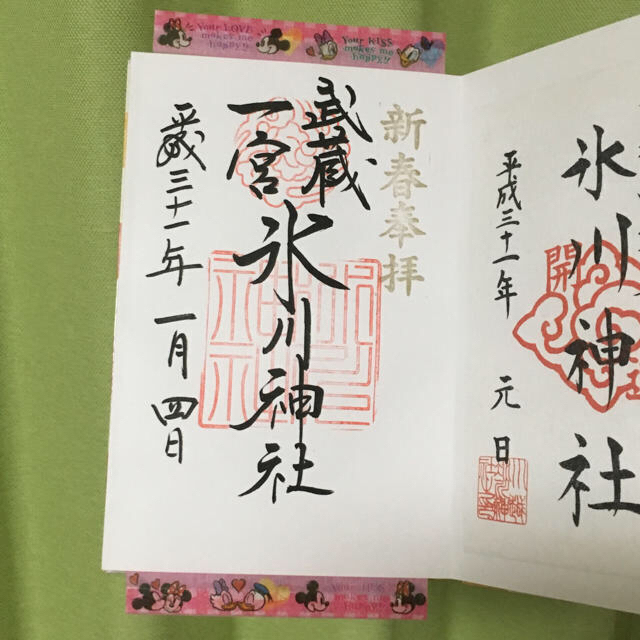 Your LOVE
makes me
happy!!
Your KISS
makes me
happy!!
新春奉拝
武蔵
一宮
氷川神社
平成三十一年一月四日
氷川神社
平成三十一年 元日
開